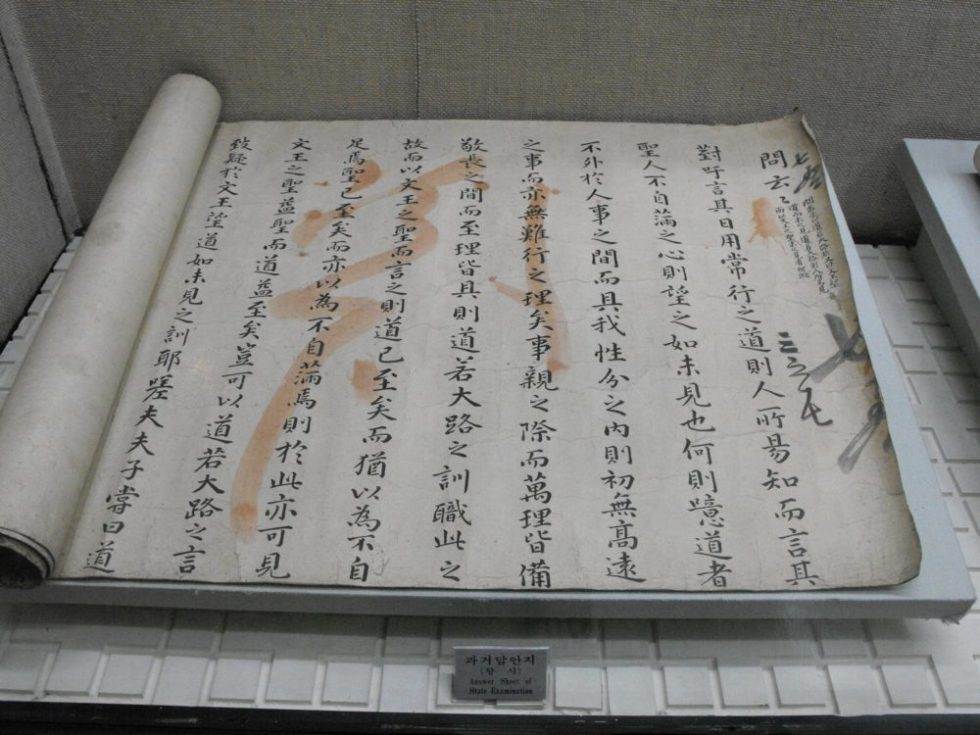 問云云
對吁言其日用常行之道則人所易知而言其
聖人不自滿之心則望之如未見也何則噫道者
不外於人事之間而具我性分之內則初無高遠
之事而亦無難行之理矣事親之際而萬理皆備
敬長之間而至理皆具則道若大路之訓職此之
故而以文王之聖而言之則道已至矣而猶以為不自
足焉聖已至矣而亦以為不自滿焉則於此亦可見
文王之聖益聖而道益至矣豈可以道若大路之言
致疑於文王望道如未見之訓耶嗟夫夫子嘗曰道
三之毛
과거답안지
(향시)
Answer Sheet of
State Examination